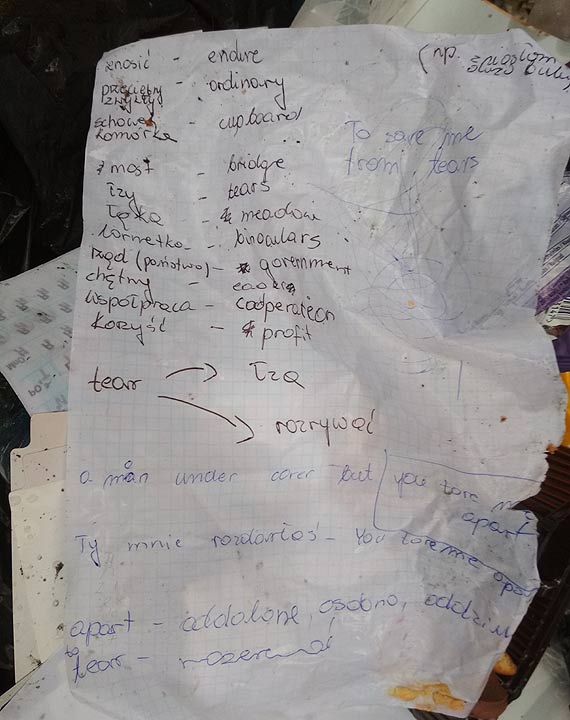 znosić - endure
(np.
przeciętny
zwykły - ordinary
schowek
komórka - cupboard
To save me
from tears
most - bridge
łzy - tears
łąka - meadow
lornetka - binoculars
rząd (państwo) - government
chętny - eager
współpraca - cooperation
korzyść - profit
tear → łza
→ rozrywać
a man under cover but you tore me
apart
Ty mnie rozdarłaś - You tore me apart
apart - oddalone, osobno,
to
tear -